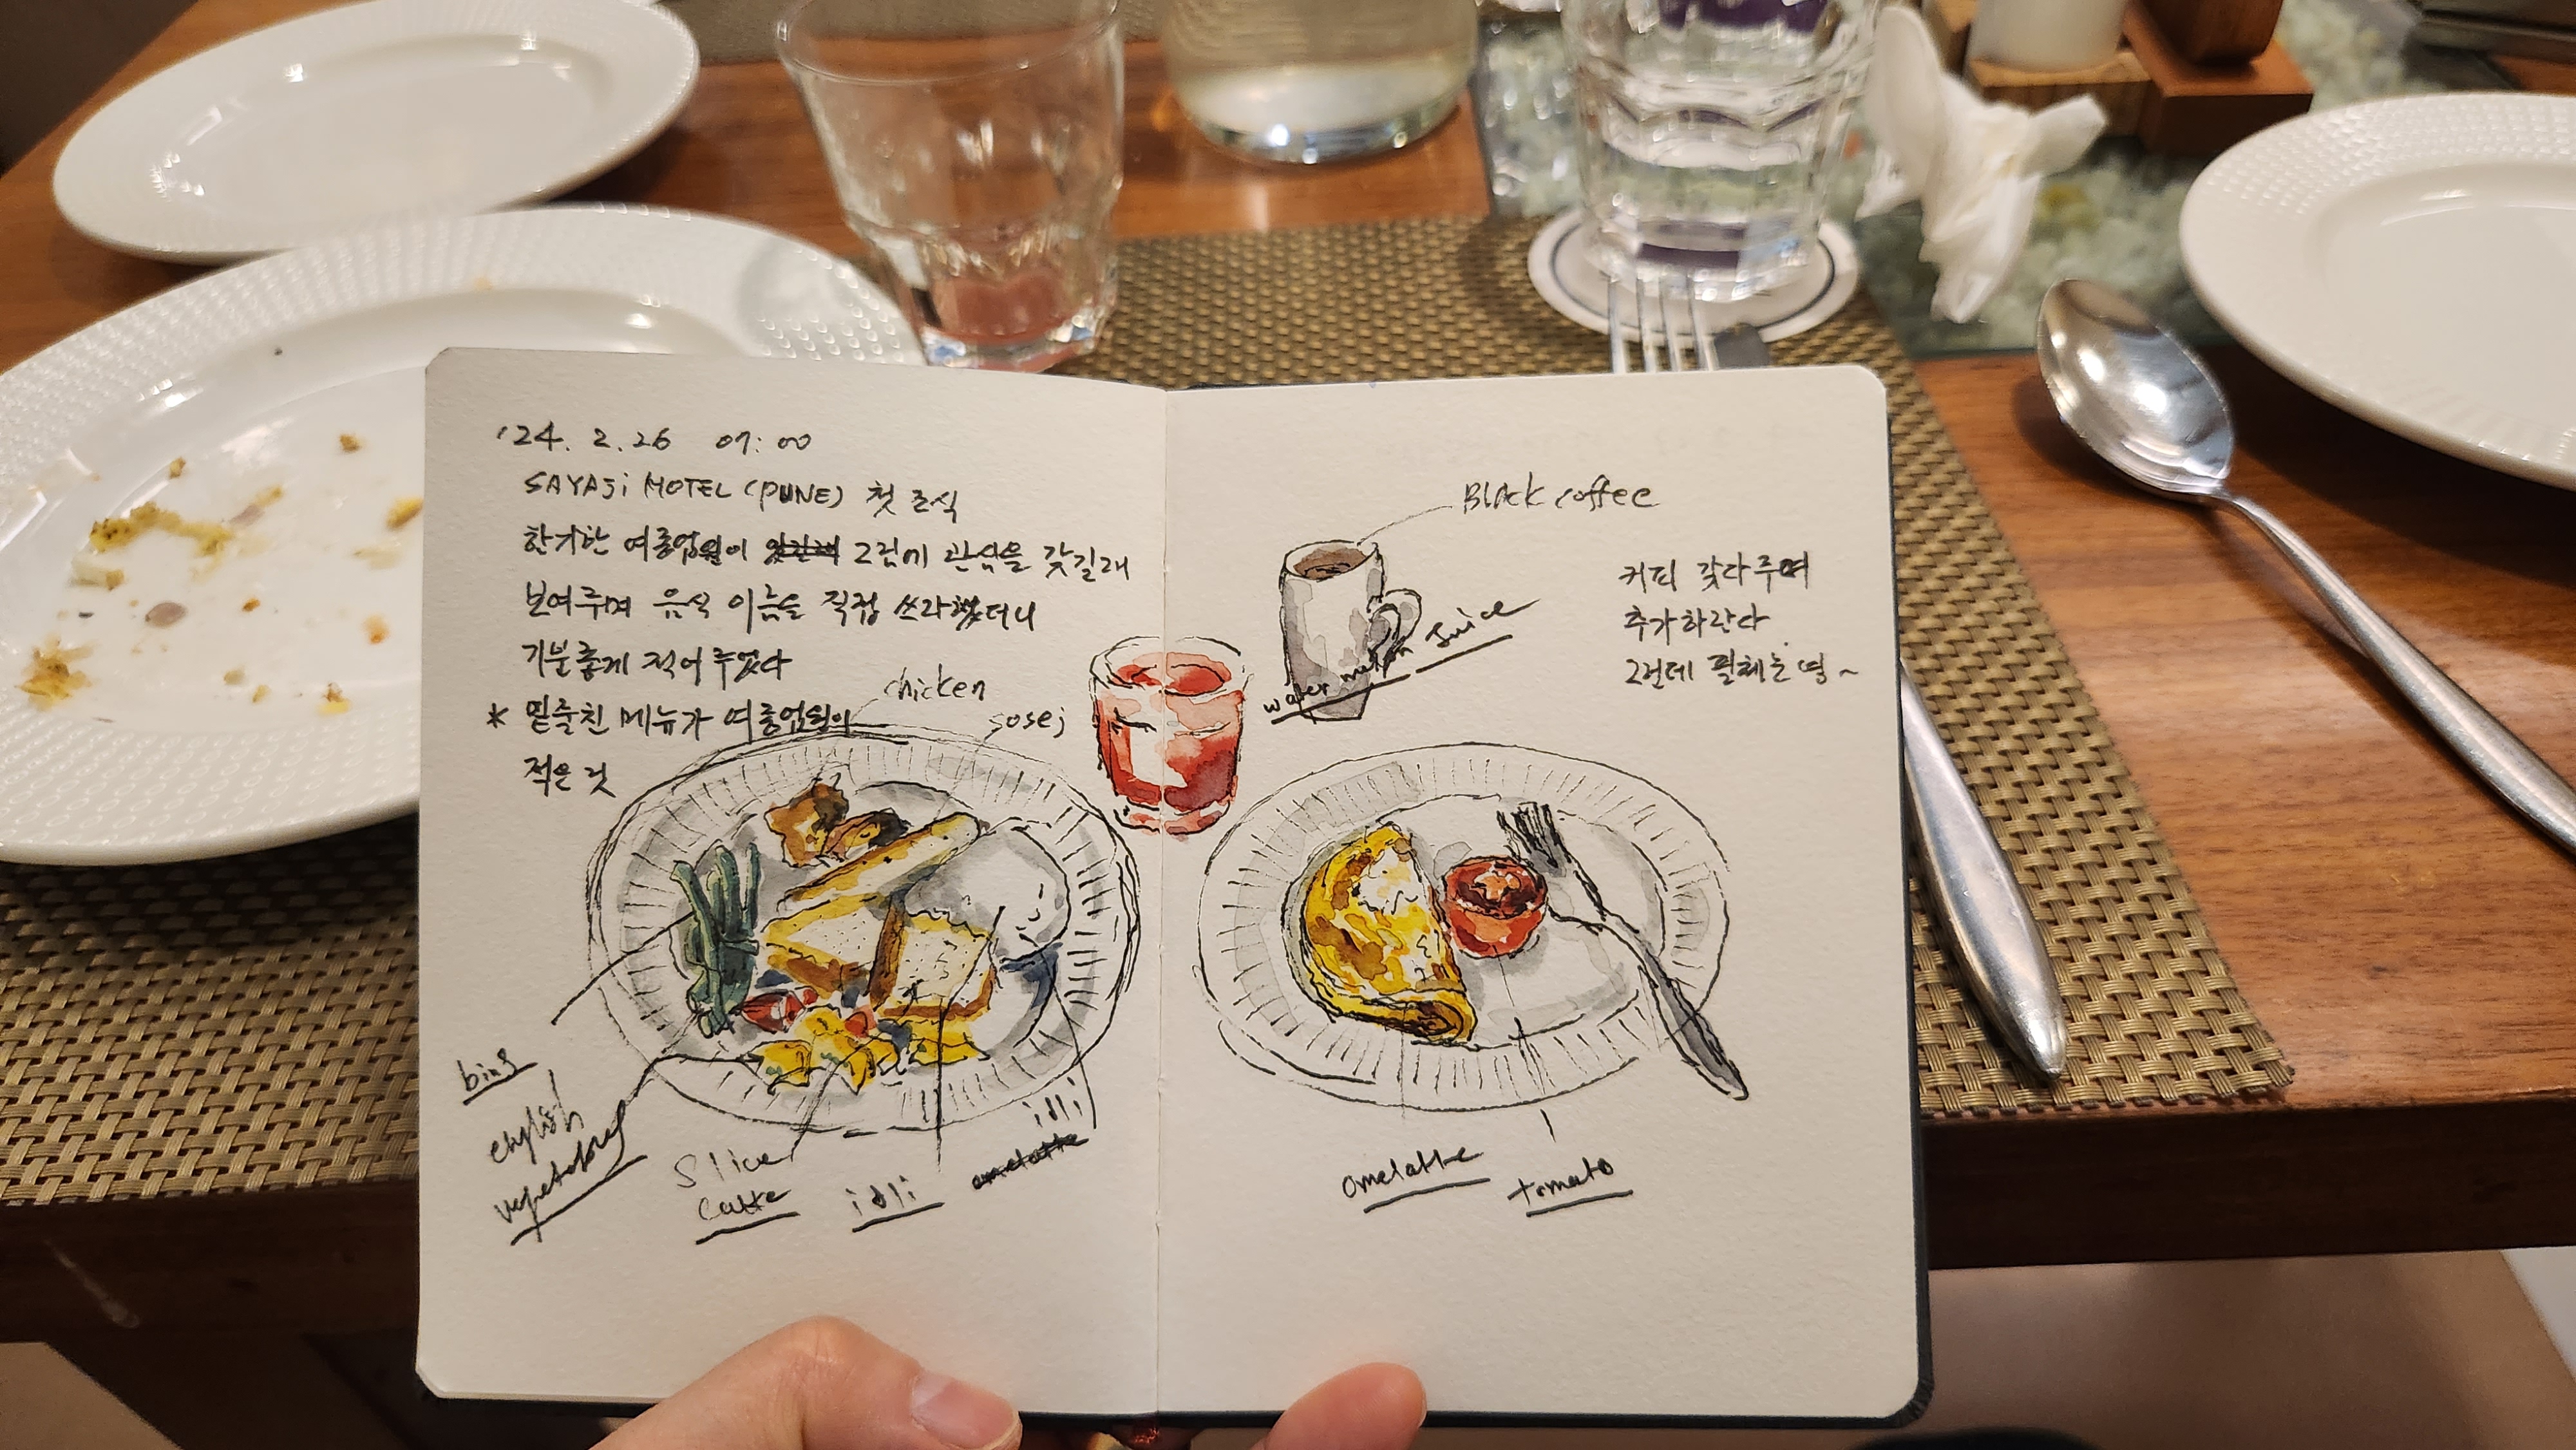 '24. 2. 26 07:00
SAYAJi HOTEL (PUNE) 첫 조식
한가한 여종업원이 그림에 관심을 갖길래
보여주며 음식 이름을 직접 쓰라했더니
기분좋게 적어주었다
* 밑줄친 메뉴가 여종업원이
적은 것
chicken
sosej
Black coffee
커피 갖다주며
추가하란다
그런데 필체는 영~
water melon Juice
bins
english
Slice
idli
idli
omelatte
omelatte
tomato